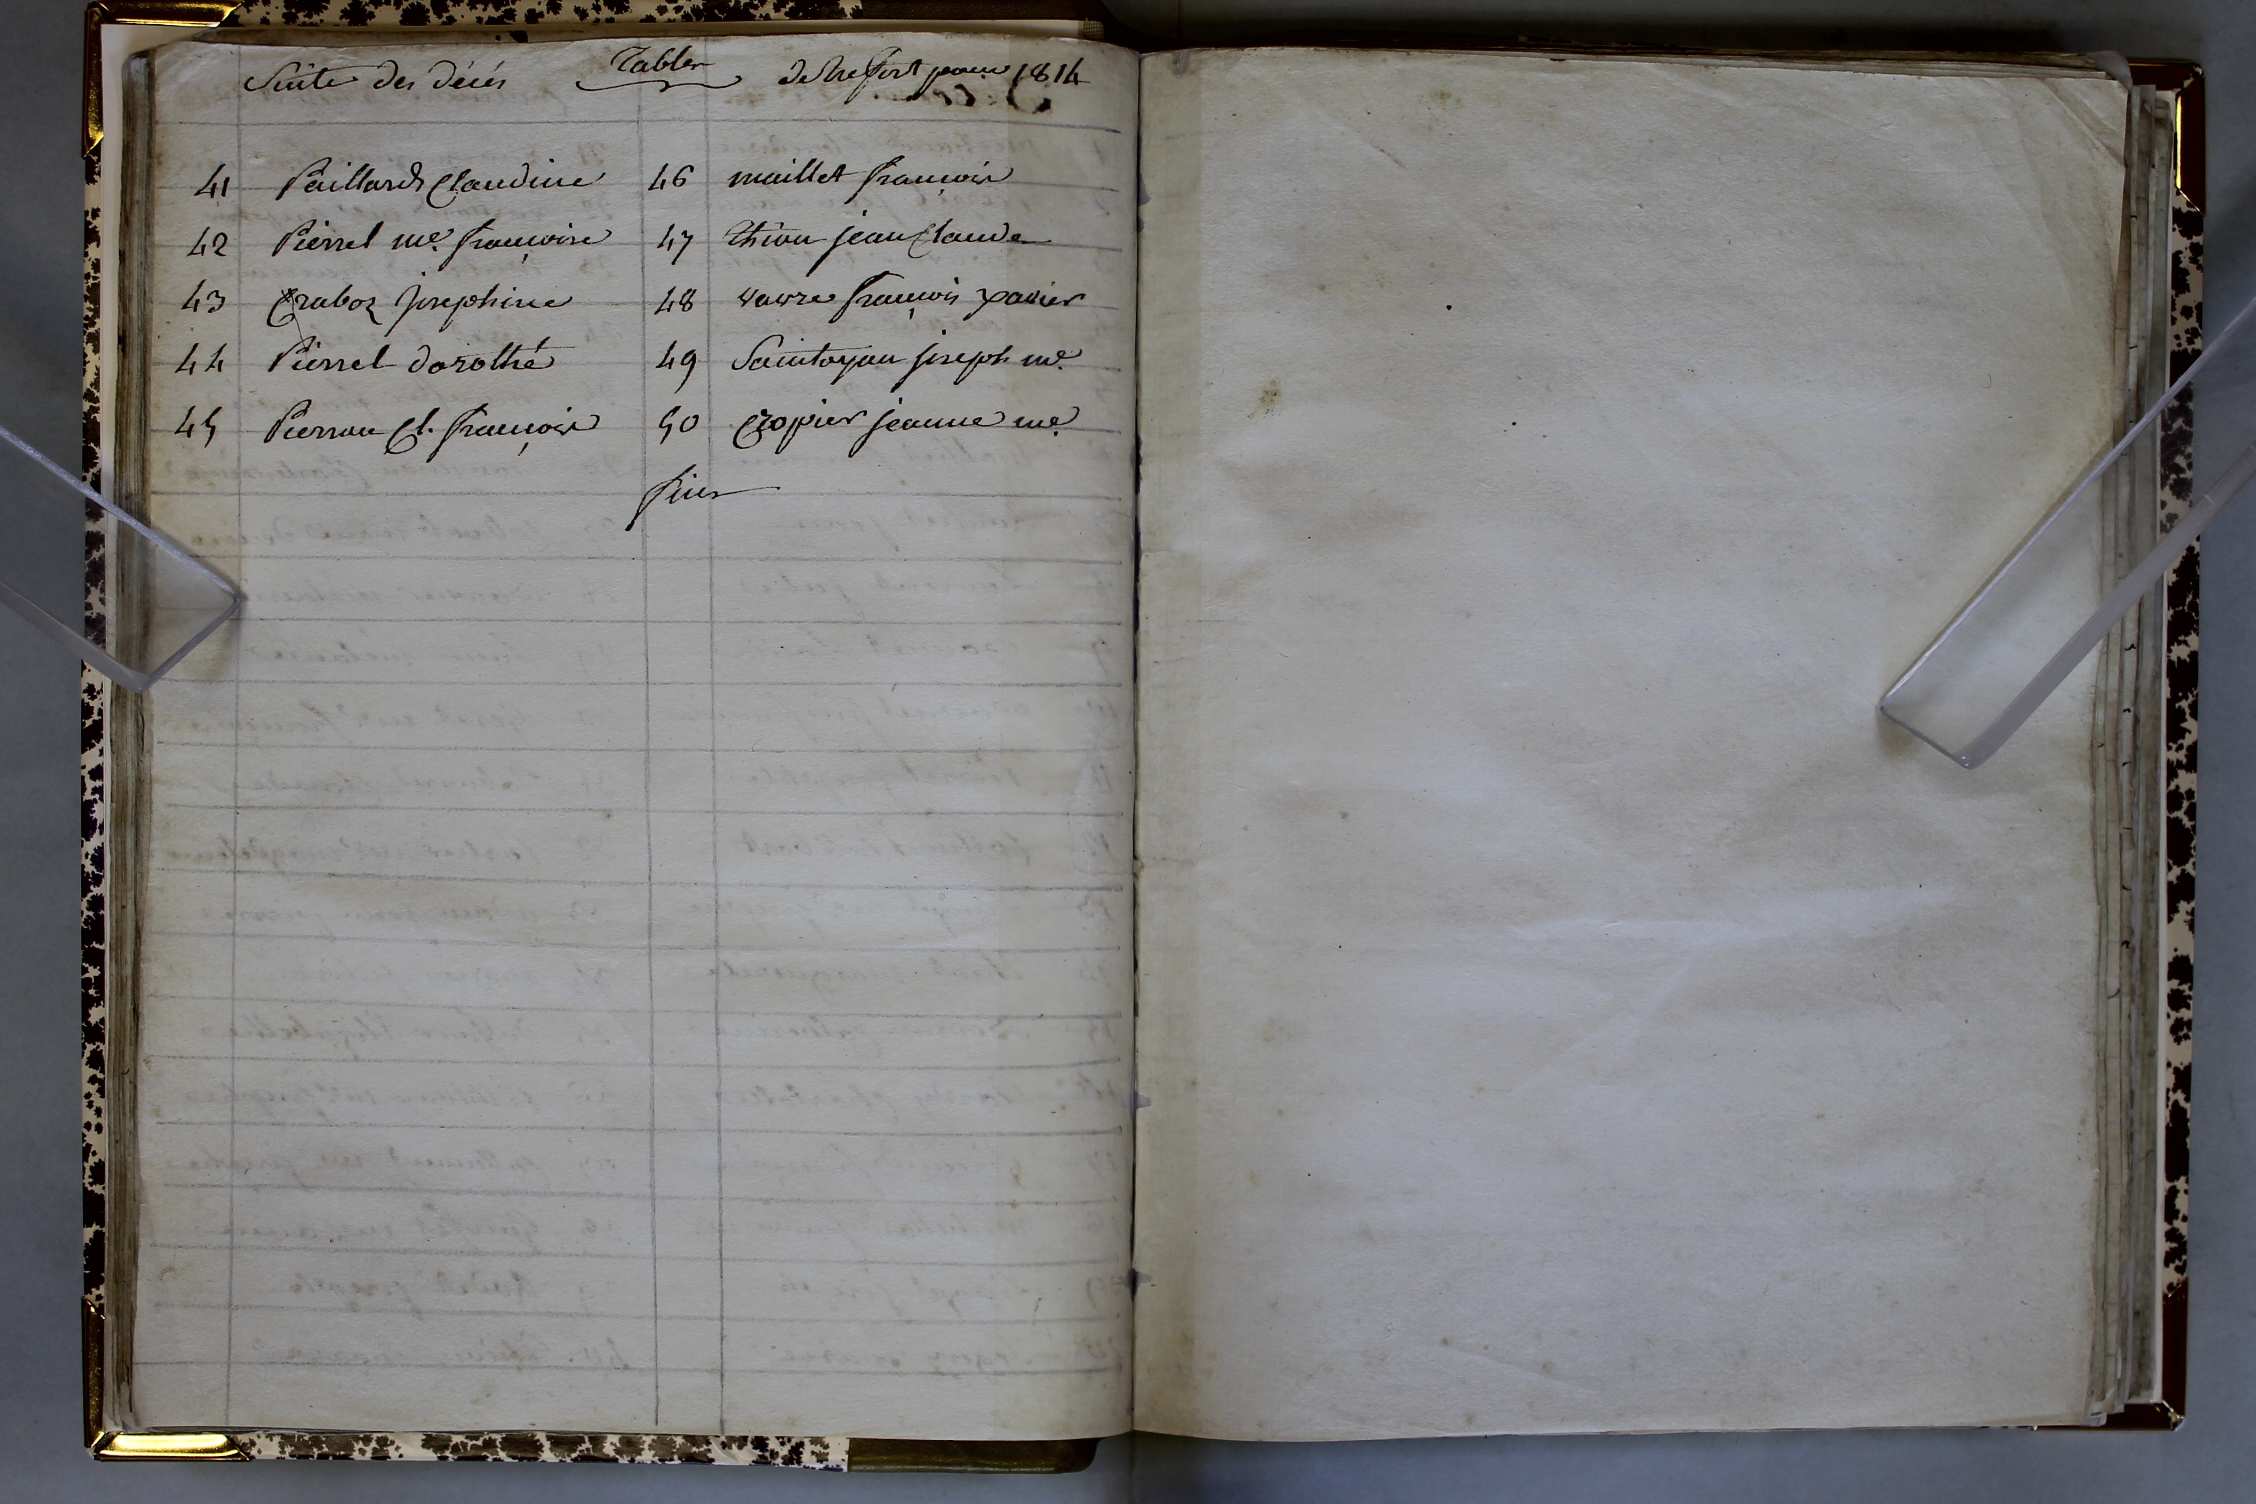 Suite des décés Tables de Treffort pour 1814
41 Paillard Claudine 46 maillet françois
42 Pierrel me. françoise 47 Thion jean Claude
43 Craboz josephine 48 vavre françois xavier
44 Pierrel dorothé 49 Saintoyan joseph me.
45 Pierron Cl. françois 50 Cropier jeanne me.
fin